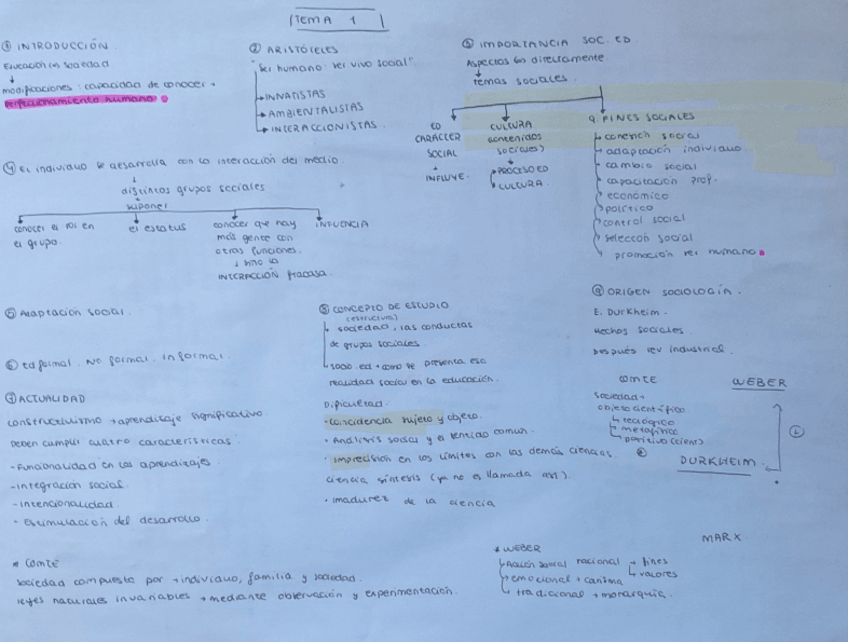 TEMA 1
① INTRODUCCIÓN
Educación en sociedad
modificaciones: capacidad de conocer →
perfeccionamiento humano.
② ARISTÓTELES
"Ser humano: ser vivo social"
→ INNATISTAS
→ AMBIENTALISTAS
→ INTERACCIONISTAS.
③ IMPORTANCIA SOC. ED
Aspectos directamente
temas sociales.
ED
CARÁCTER
SOCIAL
INFLUYE.
CULTURA
(contenidos
sociales)
PROCESO ED
CULTURA.
9. FINES SOCIALES
cohesión social
adaptación individuo
cambio social
capacitación prof.
económico
político
control social
selección social
promoción ser humano.
④ El individuo se desarrolla con la interacción del medio.
distintos grupos sociales
suponer
conocer el rol en
el grupo.
el estatus
conocer que hay
más gente con
otras funciones.
↓ sino la
INTERACCIÓN fracasa.
INFLUENCIA
⑤ Adaptación social.
⑥ Ed formal. No formal. Informal.
⑦ ACTUALIDAD
Constructivismo → aprendizaje significativo
Deben cumplir cuatro características
- Funcionalidad en los aprendizajes
- Integración social.
- Intencionalidad
- Estimulación del desarrollo.
⑧ CONCEPTO DE ESTUDIO
(estructura)
sociedad, las conductas
de grupos sociales
socio ed → como se presenta esa
realidad social en la educación.
Dificultad
- Coincidencia sujeto y objeto.
· Análisis social y el sentido común.
· imprecisión en los límites con las demás ciencias.
ciencia síntesis (ya no es llamada así).
· inmadurez de la ciencia
⑨ ORIGEN SOCIOLOGÍA.
E. DURKHEIM.
Hechos sociales.
Después rev industrial.
COMTE
sociedad →
objeto científico
↳ teológico
↳ metafísico
↳ positivo (cient)
WEBER
DURKHEIM.
MARX
* COMTE
sociedad compuesta por → individuo, familia y sociedad.
leyes naturales invariables → mediante observación y experimentación.
* WEBER
Acción social racional → fines
↳ valores
↳ emocional → carisma
↳ tradicional → monarquía.